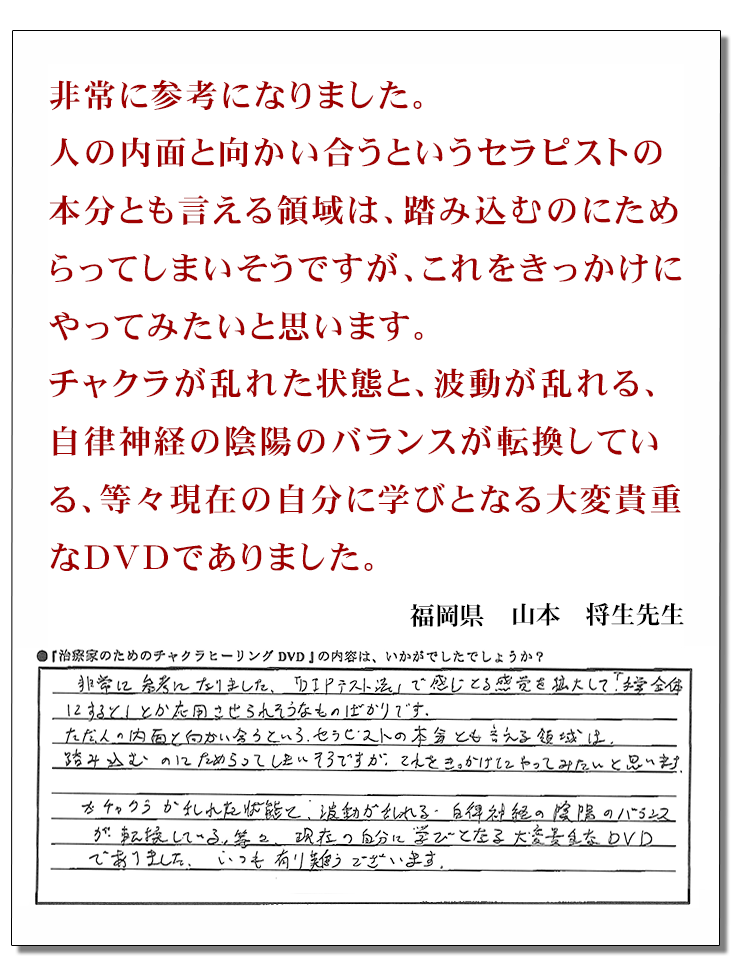 非常に参考になりました。
人の内面と向かい合うというセラピストの
本分とも言える領域は、踏み込むのにため
らってしまいそうですが、これをきっかけに
やってみたいと思います。
チャクラが乱れた状態と、波動が乱れる、
自律神経の陰陽のバランスが転換してい
る、等々現在の自分に学びとなる大変貴重
なDVDでありました。
福岡県 山本 将生先生
●『治療家のためのチャクラヒーリングDVD』の内容は、いかがでしたでしょうか？
非常に参考になりました。「DIPテスト法」で感じとる感覚を拡大して「全体
にすると」とか応用させられそうなものばかりです。
ただ人の内面と向かい合うという、セラピストの本分とも言える領域は、
踏み込むのにためらってしまいそうですが、これをきっかけにやってみたいと思います。
チャクラが乱れた状態と、波動が乱れる・自律神経の陰陽のバランス
が転換している、等々、現在の自分に学びとなる大変貴重なDVD
でありました。いつも有り難うございます。